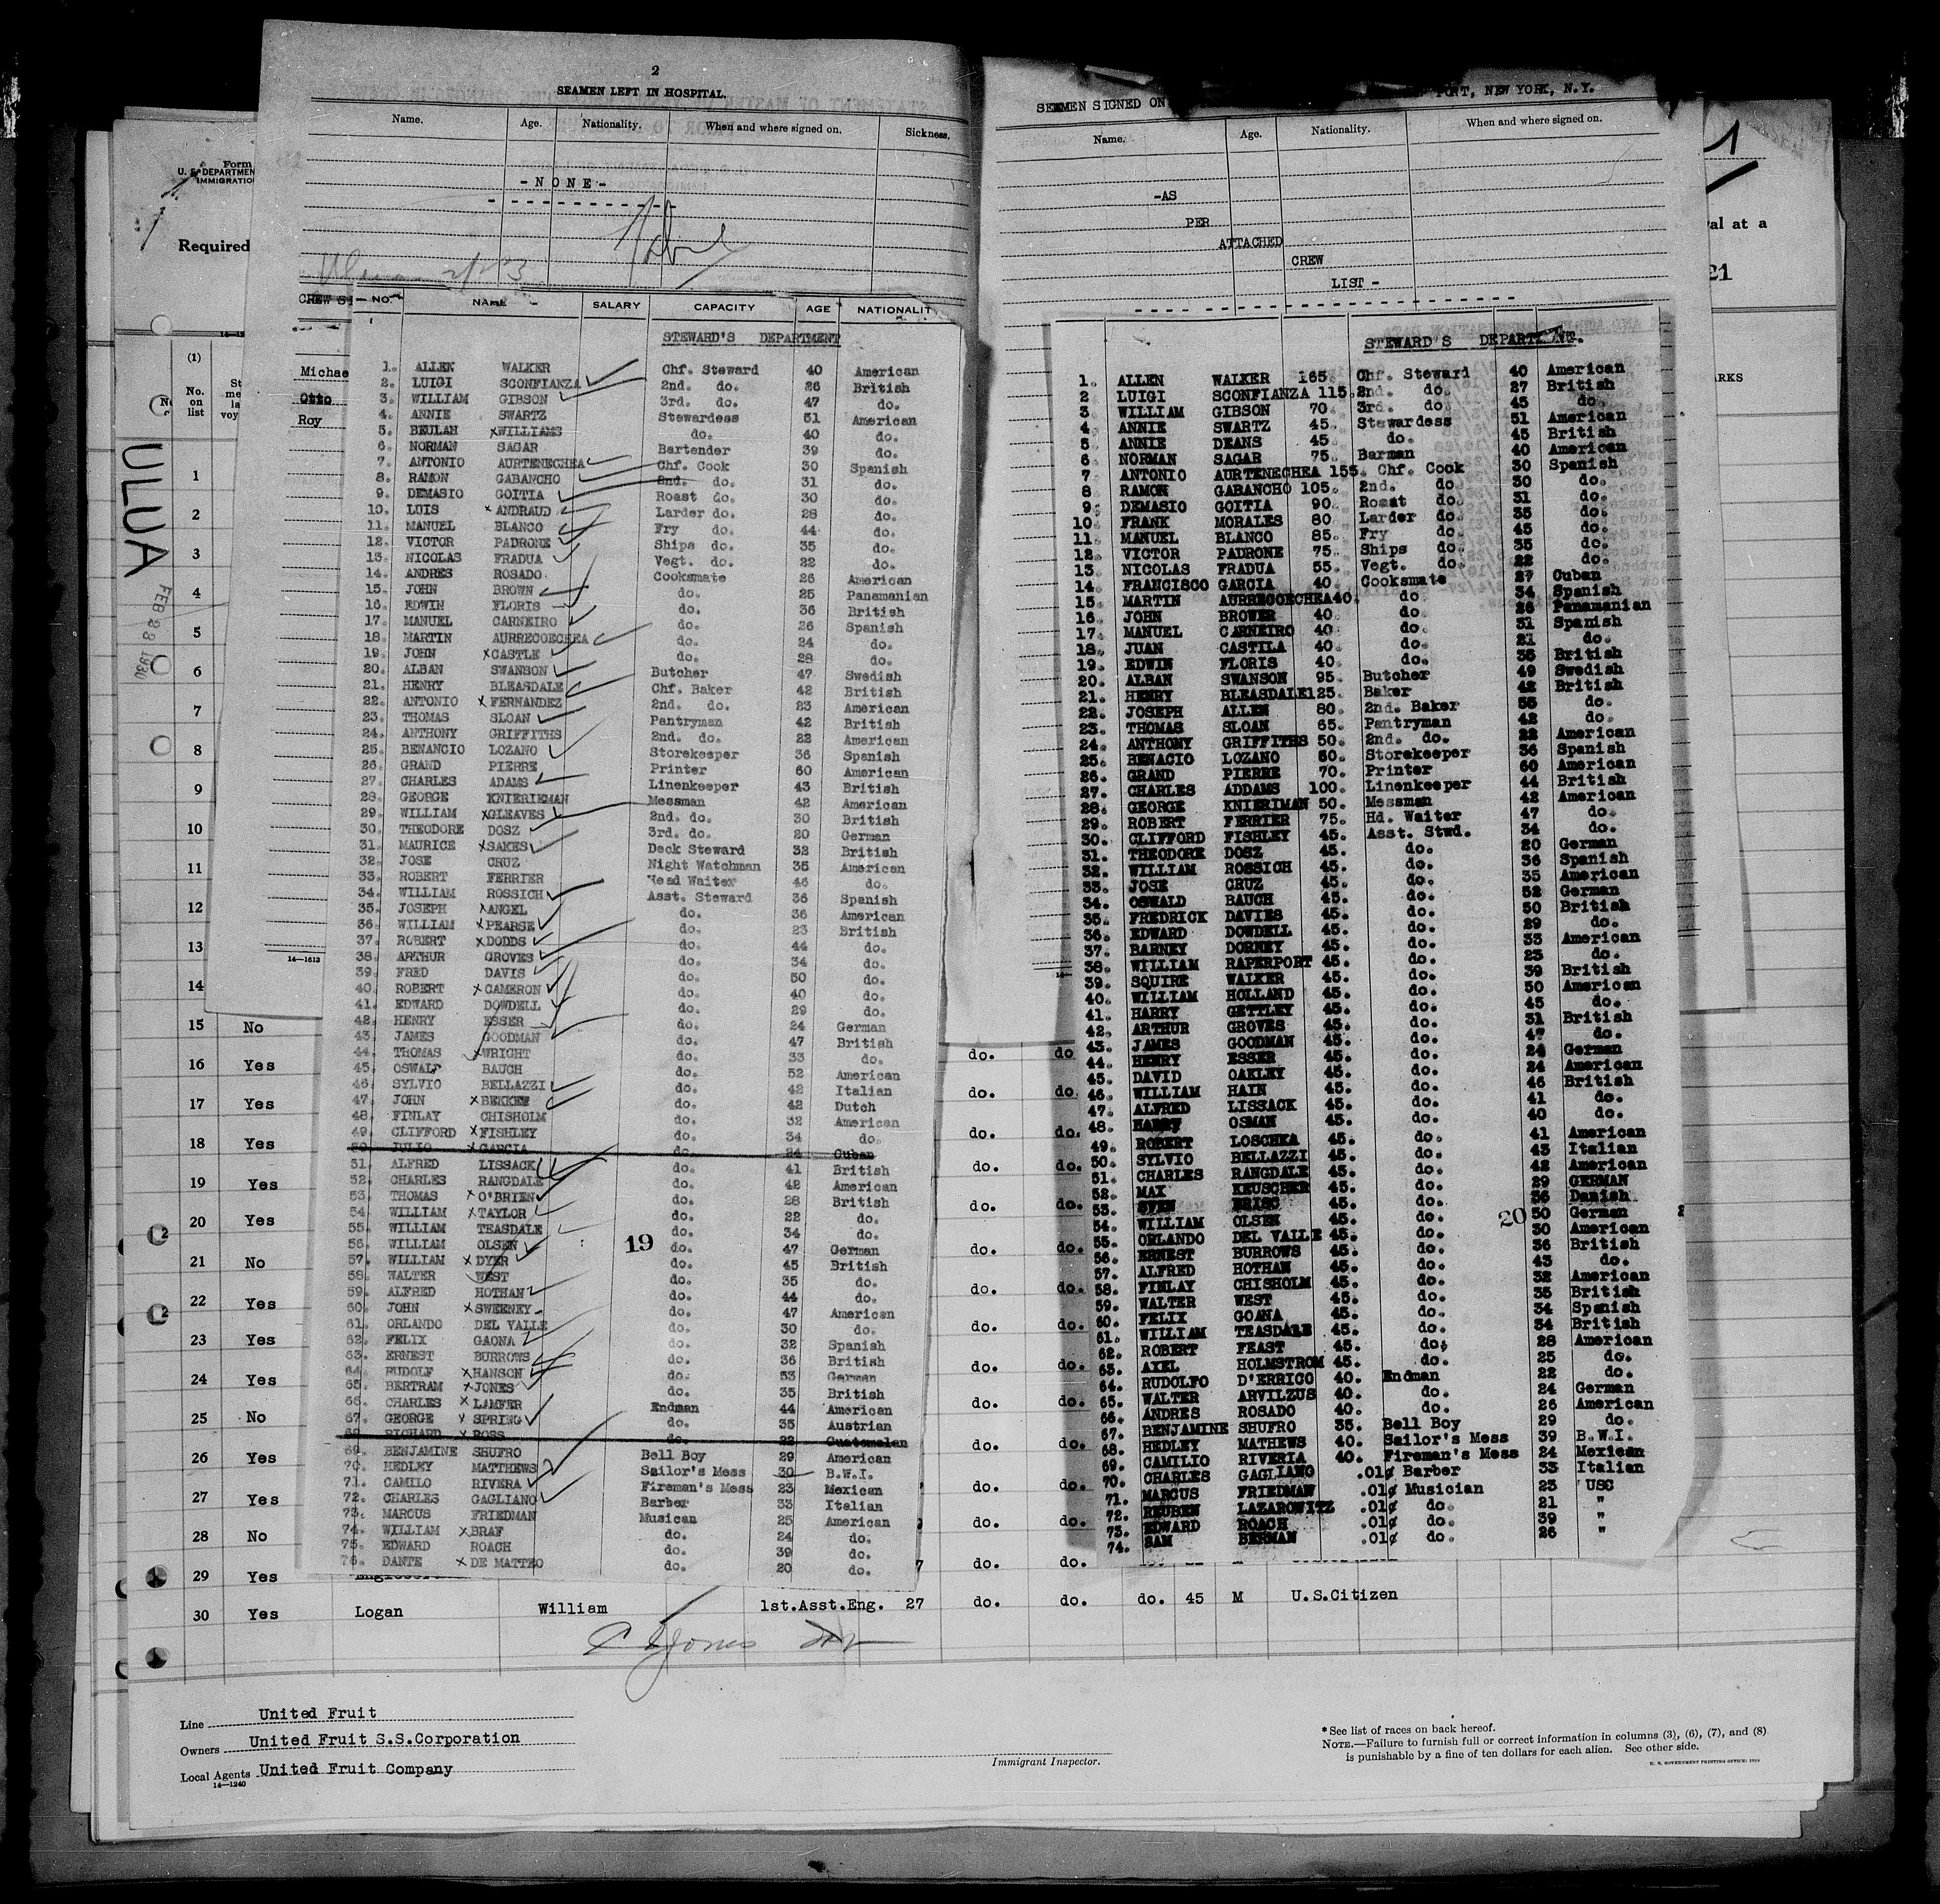 2
SEAMEN LEFT IN HOSPITAL.
Name. Age. Nationality. When and where signed on. Sickness.
-NONE-
CREW
Michae
Otto
Roy
Form
U. S. DEPARTMEN
IMMIGRATIO
Required
(1)
No. on list
ULUA
FEB 23 1930
NO. NAME SALARY CAPACITY AGE NATIONALIT
STEWARD'S DEPARTMENT
1. ALLEN WALKER Chf. Steward 40 American
2. LUIGI SCONFIANZA 2nd. do. 26 British
3. WILLIAM GIBSON 3rd. do. 47 do.
4. ANNIE SWARTZ Stewardess 51 American
5. BEULAH XWILLIAMS do. 40 do.
6. NORMAN SAGAR Bartender 39 do.
7. ANTONIO AURTENECHEA Chf. Cook 30 Spanish
8. RAMON GABANCHO 2nd. do. 31 do.
9. DEMASIO GOITIA Roast do. 30 do.
10. LUIS XANDRAUD Larder do. 28 do.
11. MANUEL BLANCO Fry do. 44 do.
12. VICTOR PADRONE Ships do. 35 do.
13. NICOLAS FRADUA Vegt. do. 22 do.
14. ANDRES ROSADO Cooksmate 26 American
15. JOHN BROWN do. 25 Panamanian
16. EDWIN FLORIS do. 36 British
17. MANUEL CARNEIRO do. 26 Spanish
18. MARTIN AURRECOECHEA do. 24 do.
19. JOHN XCASTLE do. 28 do.
20. ALBAN SWANSON Butcher 47 Swedish
21. HENRY BLEASDALE Chf. Baker 42 British
22. ANTONIO XFERNANDEZ 2nd. do. 23 American
23. THOMAS SLOAN Pantryman 42 British
24. ANTHONY GRIFFITHS 2nd. do. 22 American
25. BENANCIO LOZANO Storekeeper 36 Spanish
26. GRAND PIERRE Printer 60 American
27. CHARLES ADAMS Linenkeeper 43 British
28. GEORGE KNIERIEMAN Messman 42 American
29. WILLIAM XGLEAVES 2nd. do. 30 British
30. THEODORE DOSZ 3rd. do. 20 German
31. MAURICE XSAKES Deck Steward 32 British
32. JOSE CRUZ Night Watchman 35 American
33. ROBERT FERRIER Head Waiter 46 do.
34. WILLIAM ROSSICH Asst. Steward 36 Spanish
35. JOSEPH XANGEL do. 36 American
36. WILLIAM XPEARSE do. 23 British
37. ROBERT XDODDS do. 44 do.
38. ARTHUR GROVES do. 34 do.
39. FRED DAVIS do. 50 do.
40. ROBERT XCAMERON do. 40 do.
41. EDWARD DOWDELL do. 29 do.
42. HENRY ESSER do. 24 German
43. JAMES GOODMAN do. 47 British
44. THOMAS XWRIGHT do. 33 do.
45. OSWALD BAUCH do. 52 American
46. SYLVIO BELLAZZI do. 42 Italian
47. JOHN XBEKKEW do. 42 Dutch
48. FINLAY CHISHOLM do. 32 American
49. CLIFFORD XFISHLEY do. 34 do.
50. JULIO XGARCIA do. 24 Cuban
51. ALFRED LISSACK do. 41 British
52. CHARLES RANGDALE do. 42 American
53. THOMAS XO'BRIEN do. 28 British
54. WILLIAM XTAYLOR do. 22 do.
55. WILLIAM TEASDALE do. 34 do.
56. WILLIAM OLSEN do. 47 German
57. WILLIAM XDYER do. 45 British
58. WALTER WEST do. 35 do.
59. ALFRED HOTHAN do. 44 do.
60. JOHN XSWEENEY do. 47 American
61. ORLANDO DEL VALLE do. 30 do.
62. FELIX GAONA do. 32 Spanish
63. ERNEST BURROWS do. 36 British
64. RUDOLF XHANSON do. 53 German
65. BERTRAM XJONES do. 35 British
66. CHARLES XLAMFER Endman 44 American
67. GEORGE XSPRING do. 35 Austrian
68. RICHARD XROSS do. 22 Guatemalan
69. BENJAMINE SHUFRO Bell Boy 29 American
70. HEDLEY MATTHEWS Sailor's Mess 30 B.W.I.
71. CAMILO RIVERA Fireman's Mess 23 Mexican
72. CHARLES GAGLIANO Barber 33 Italian
73. MARCUS FRIEDMAN Musican 25 American
74. WILLIAM XBRAF do. 24 do.
75. EDWARD ROACH do. 39 do.
76. DANTE XDE MATTEO do. 20 do.
19
SEAMEN SIGNED ON PORT, NEW YORK, N.Y.
Name. Age. Nationality. When and where signed on.
-AS
PER
ATTACHED
CREW
LIST -
1
val at a
21
RKS
STEWARD'S DEPARTMENT.
1. ALLEN WALKER 165. Chf. Steward 40 American
2 LUIGI SCONFIANZA 115. 2nd. do. 27 British
3 WILLIAM GIBSON 70. 3rd. do. 45 do.
4. ANNIE SWARTZ 45. Stewardess 51 American
5. ANNIE DEANS 45. do. 45 British
6 NORMAN SAGAR 75. Barman 40 American
7 ANTONIO AURTENECHEA 155. Chf. Cook 30 Spanish
8 RAMON GABANCHO 105. 2nd. do. 30 do.
9. DEMASIO GOITIA 90. Roast do. 31 do.
10. FRANK MORALES 80. Larder do. 35 do.
11. MANUEL BLANCO 85. Fry do. 45 do.
12. VICTOR PADRONE 75. Ships do. 35 do.
13. NICOLAS FRADUA 55. Vegt. do. 22 do.
14. FRANCISCO GARCIA 40. Cooksmate 27 Cuban
15. MARTIN AURRECOECHEA 40. do. 34 Spanish
16. JOHN BROWER 40. do. 26 Panamanian
17. MANUEL CARNEIRO 40. do. 31 Spanish
18. JUAN CASTILA 40. do. 21 do.
19. EDWIN FLORIS 40. do. 35 British
20. ALBAN SWANSON 95. Butcher 49 Swedish
21. HENRY BLEASDALE 125. Baker 42 British
22. JOSEPH ALLEN 80. 2nd. Baker 55 do.
23. THOMAS SLOAN 65. Pantryman 42 do.
24. ANTHONY GRIFFITHS 50. 2nd. do. 22 American
25. BENACIO LOZANO 60. Storekeeper 36 Spanish
26. GRAND PIERRE 70. Printer 60 American
27. CHARLES ADDAMS 100. Linenkeeper 44 British
28. GEORGE KNIERIMAN 50. Messman 42 American
29. ROBERT FERRIER 75. Hd. Waiter 47 do.
30. CLIFFORD FISHLEY 45. Asst. Stwd. 34 do.
31. THEODORE DOSZ 45. do. 20 German
32. WILLIAM ROSSICH 45. do. 36 Spanish
33. JOSE CRUZ 45. do. 35 American
34. OSWALD BAUCH 45. do. 52 German
35. FREDRICK DAVIES 45. do. 50 British
36. EDWARD DOWDELL 45. do. 29 do.
37. BARNEY DORNEY 45. do. 33 American
38. WILLIAM RAPERPORT 45. do. 23 do.
39. SQUIRE WALKER 45. do. 39 British
40. WILLIAM HOLLAND 45. do. 50 American
41. HARRY GETTLEY 45. do. 45 do.
42. ARTHUR GROVES 45. do. 31 British
43. JAMES GOODMAN 45. do. 47 do.
44. HENRY ESSER 45. do. 24 German
45. DAVID OAKLEY 45. do. 24 American
46. WILLIAM HAIN 45. do. 46 British
47. ALFRED LISSACK 45. do. 41 do.
48. HARRY OSMAN 45. do. 40 do.
49. ROBERT LOSCHKA 45. do. 41 American
50. SYLVIO BELLAZZI 45. do. 43 Italian
51. CHARLES RANGDALE 45. do. 42 American
52. MAX KEUSCHER 45. do. 29 GERMAN
53. SVEN BRISC 45. do. 36 Danish
54. WILLIAM OLSEN 45. do. 50 German
55. ORLANDO DEL VALLE 45. do. 30 American
56. ERNEST BURROWS 45. do. 36 British
57. ALFRED HOTHAN 45. do. 43 do.
58. FINLAY CHISHOLM 45. do. 32 American
59. WALTER WEST 45. do. 35 British
60. FELIX GOANA 45. do. 34 Spanish
61. WILLIAM TEASDALE 45. do. 34 British
62. ROBERT FEAST 45. do. 28 American
63. AXEL HOLMSTROM 45. do. 25 do.
64. RUDOLFO D'ERRICO 40. Endman 22 do.
65. WALTER ARVILZUS 40. do. 24 German
66. ANDRES ROSADO 40. do. 26 American
67. BENJAMINE SHUFRO 35. Bell Boy 29 do.
68. HEDLEY MATHEWS 40. Sailor's Mess 39 B.W.I.
69. CAMILIO RIVERIA 40. Fireman's Mess 24 Mexican
70. CHARLES GAGLIANO .01¢ Barber 33 Italian
71. MARCUS FRIEDMAN .01¢ Musician 25 USC
72. REUBEN LAZAROWITZ .01¢ do. 21 "
73. EDWARD ROACH .01¢ do. 39 "
74. SAM BERMAN .01¢ do. 26 "
20
1
2
3
4
5
6
7
8
9
10
11
12
13
14-1613
14
15 No
16 Yes do. do
17 Yes do. do.
18 Yes do. do.
19 Yes do. do.
20 Yes do. do.
21 No do. do.
22 Yes do. do.
23 Yes do. do.
24 Yes do. do.
25 No do. do.
26 Yes do. do.
27 Yes do. do.
28 No do. do.
29 Yes 7 do. do.
30 Yes Logan William 1st.Asst.Eng. 27 do. do. do. 45 M U.S.Citizen
Line United Fruit
Owners United Fruit S.S.Corporation
Local Agents United Fruit Company
14-1240
Immigrant Inspector.
* See list of races on back hereof.
NOTE.—Failure to furnish full or correct information in columns (3), (6), (7), and (8)
is punishable by a fine of ten dollars for each alien. See other side.